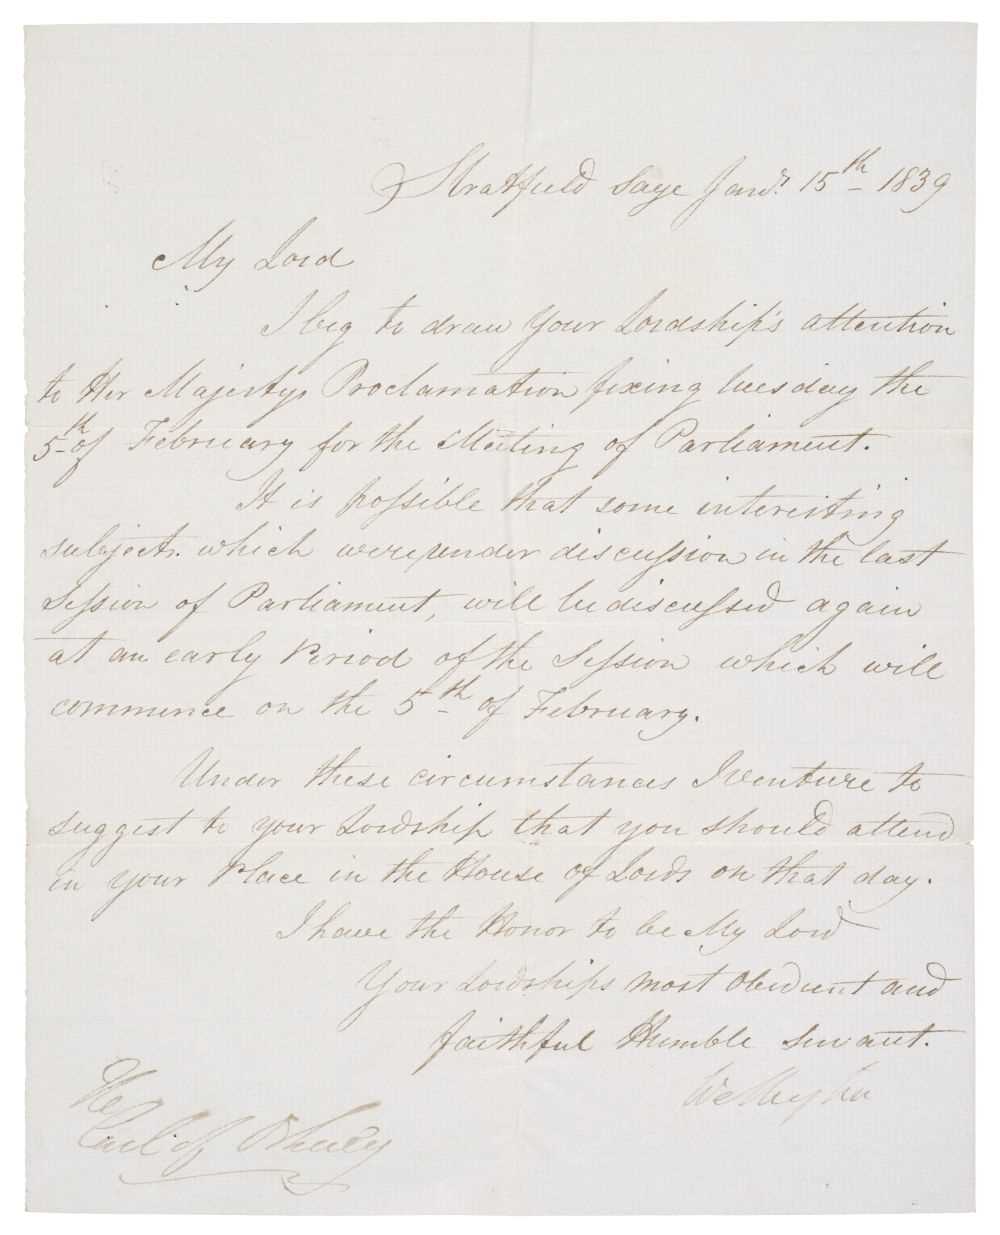 Stratfield Saye Jany. 15th 1839
My Lord
I beg to draw your Lordship's attention
to Her Majestys Proclamation fixing Tuesday the
5th of February for the Meeting of Parliament.
It is possible that some interesting
subjects. which were under discussion in the last
Session of Parliament, will be discussed again
at an early Period of the Session which will
commence on the 5th of February.
Under these circumstances I venture to
suggest to your Lordship that you should attend
in your Place in the House of Lords on that day.
I have the Honor to be My Lord
Your Lordships most obedient and
faithful Humble Servant.
Wellington
The
Earl of